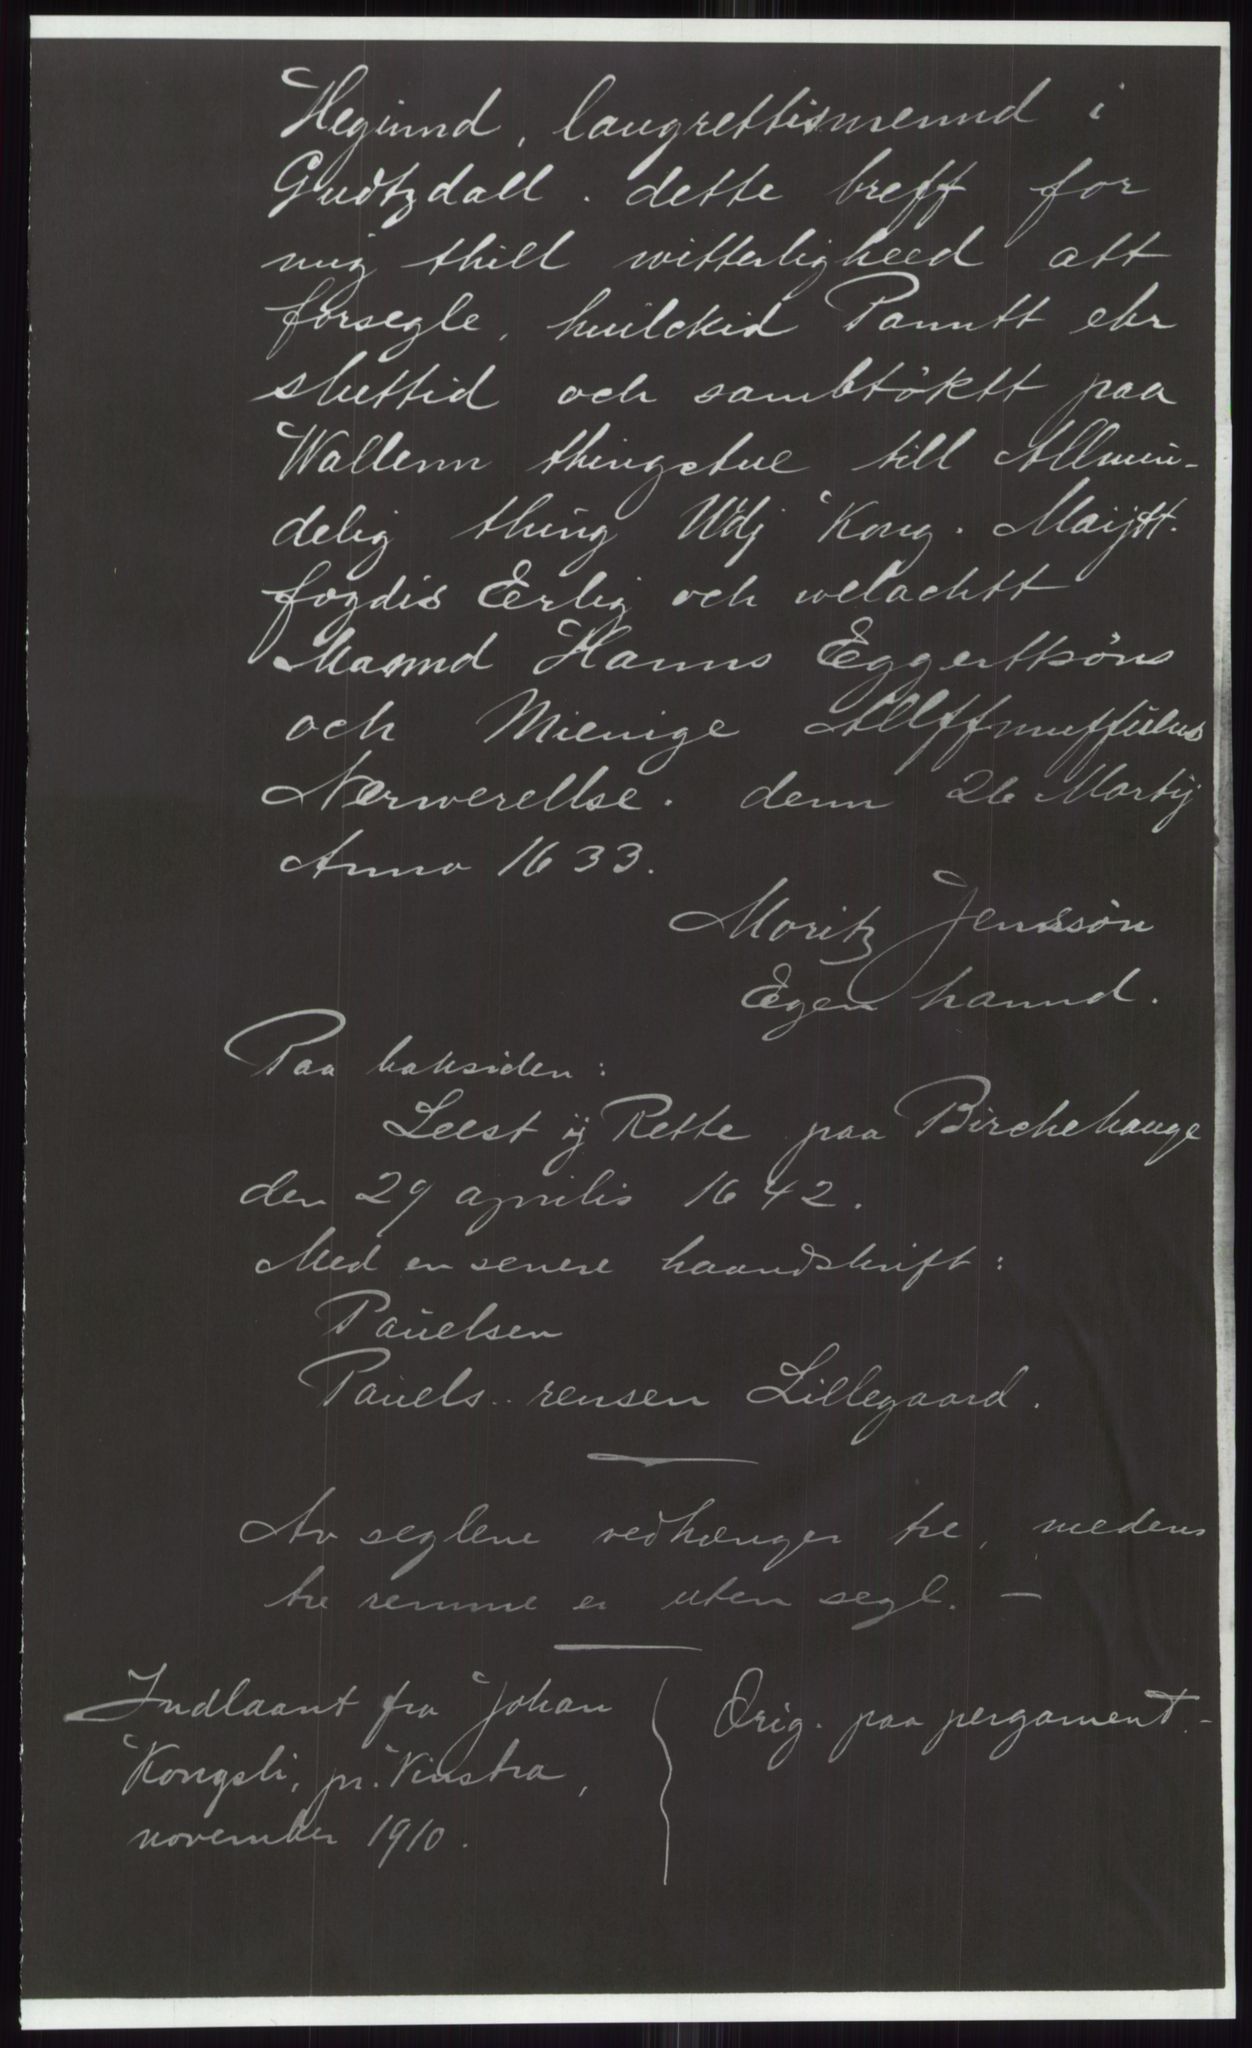 Heginnd, laugrettismennd i
Gudtzdall. dette breff for
mig thill witterligheed att
forsegle, huilckid Panntt ehr
sluttid och sambtöktt paa
Wallenn thingstue till Allmin-
delig thing Udj Kong. Maijtt.
fogdis Erlig och welachtt
Mannd Hanns Eggerttsöns
och Mienige
Nerwerellse. denn 26 Martij
Anno 1633.
Moritz Jenssön
Egen hannd.
Paa baksiden:
Leest ij Rette paa Birckehauge
den 29 aprilis 1642.
Med en senere haandskrift:
Pauelsen
Pauels.. rensen Lillegaard.
Av seglene vedhænger tre, medens
tre remme er uten segl. —
Indlaant fra Johan
Kongsli, pr. Vinstra,
november 1910.
Orig. paa pergament. -